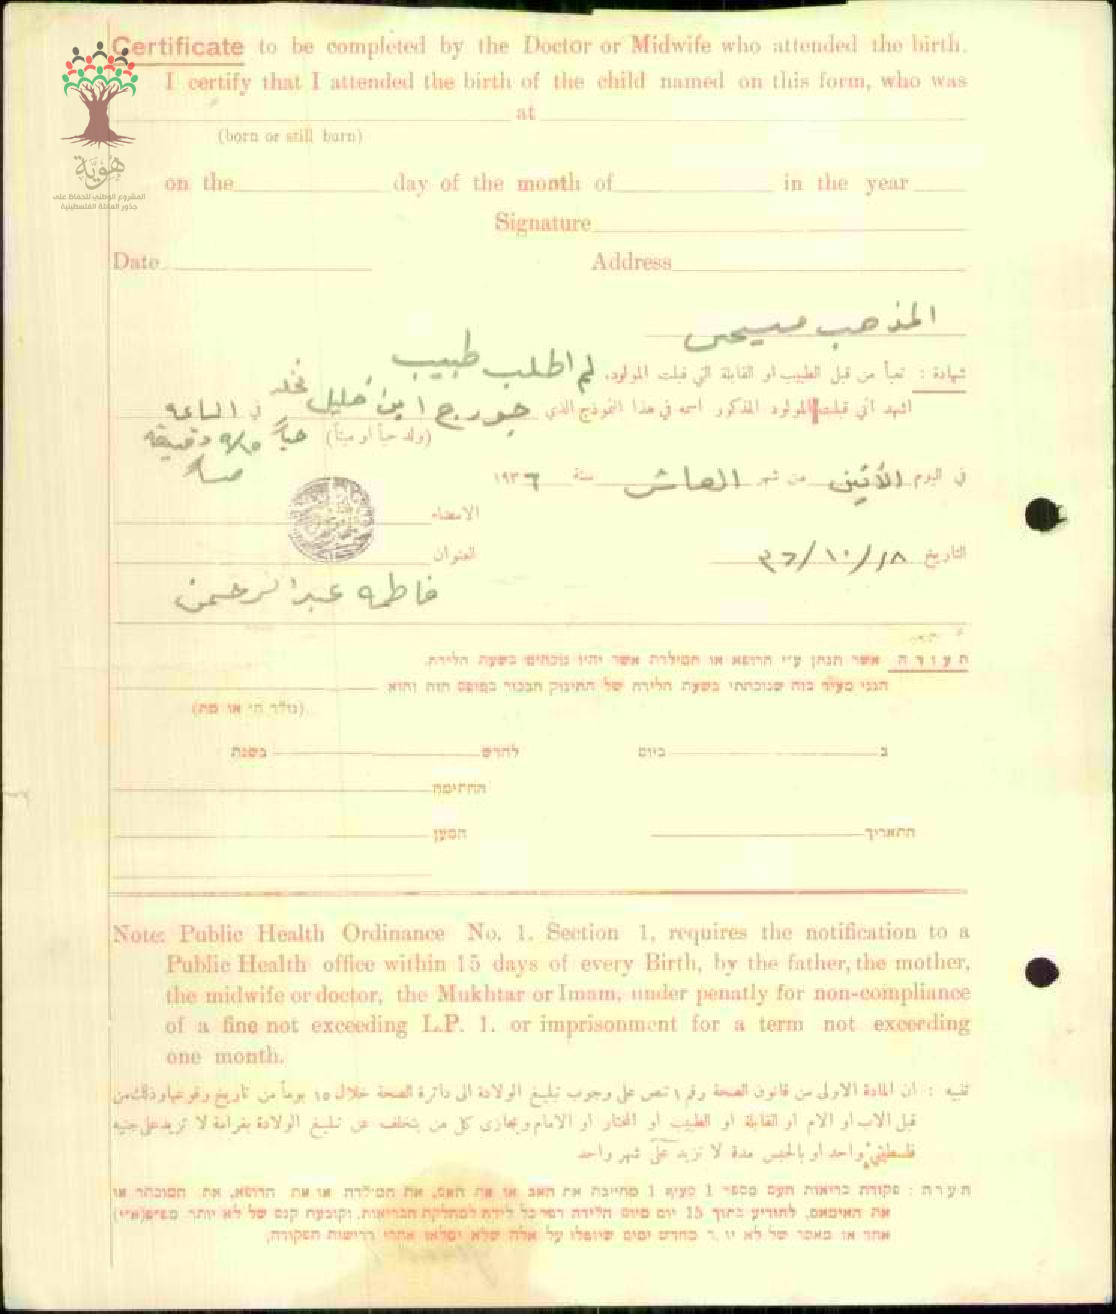 Certificate to be completed by the Doctor or Midwife who attended the birth.
I certify that I attended the birth of the child named on this form, who was
at
(born or still burn)
هُوِيَّة
المشروع الوطني للحفاظ على
جذور العائلة الفلسطينية
on the day of the month of in the year
Signature
Date Address
المذهب مسيحي
شهادة : تعبأ من قبل الطبيب او القابلة التي قبلت المولود. لم اطلب طبيب
اشهد اني قبلت المولود المذكور اسمه في هذا النموذج الذي جورج ابن خليل نخله في الساعه
(ولد حياً او ميتاً) حياً دقيقه
مساء
في اليوم الاثنين من شهر العاشر سنة ١٩٣٦
الامضاء
التاريخ ١٨/١٠/٣٦ العنوان
فاطمه عبدالرحمن
תעודה אשר תנתן ע״י הרופא או המילדת אשר יהיו נוכחים בשעת הלידה.
הנני מעיד בזה שנוכחתי בשעת הלידה של התינוק הנזכר בטופס הזה והוא
(נולד חי או מת)
ב ביום לחדש בשנת
החתימה
התאריך המען
Note: Public Health Ordinance No. 1. Section 1, requires the notification to a
Public Health office within 15 days of every Birth, by the father, the mother,
the midwife or doctor, the Mukhtar or Imam, under penatly for non-compliance
of a fine not exceeding L.P. 1. or imprisonment for a term not exceeding
one month.
تنبيه : ان المادة الاولى من قانون الصحة رقم ١ تنص على وجوب تبليغ الولادة الى دائرة الصحة خلال ١٥ يوماً من تاريخ وقوعها وذلك من
قبل الاب او الام او القابلة او الطبيب او المختار او الامام ويجازى كل من يتخلف عن تبليغ الولادة بغرامة لا تزيد على جنيه
فلسطيني واحد او بالحبس مدة لا تزيد على شهر واحد
הערה : פקודת בריאות העם מספר 1 סעיף 1 מחייבת את האב או את האם, את המילדת או את הרופא, את המוכתר או
את האימאם, להודיע בתוך 15 יום מיום הלידה דבר כל לידה למחלקת הבריאות, וקובעת קנס של לא יותר מפונט (א״י)
אחד או מאסר של לא יותר מחדש ימים שיוטלו על אלה שלא ימלאו אחרי דרישות הפקודה.